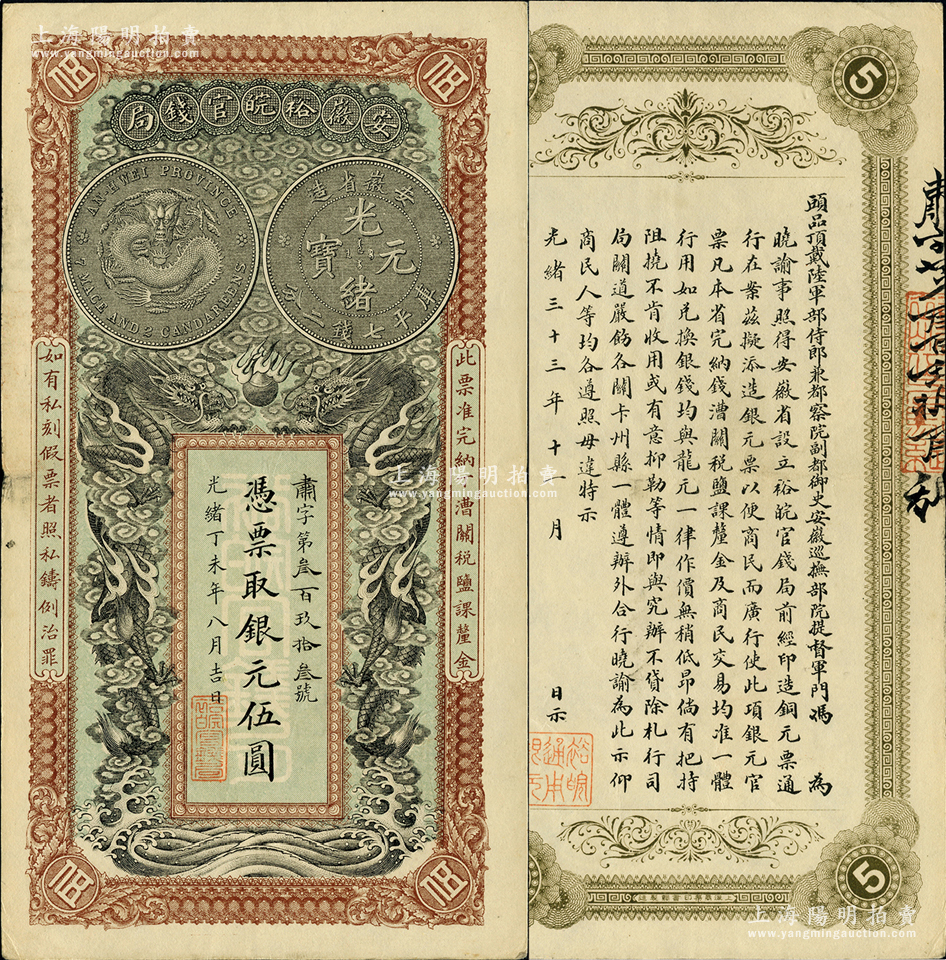 上海陽明拍賣
www.yangmingauction.com
伍
伍
局錢官皖裕徽安
AN-HWEI PROVINCE
7 MACE AND 2 CANDAREENS
造省徽安
光緒元寶
庫平七錢二分
此票准完納漕關税鹽課釐金
如有私刻假票者照私鑄例治罪
肅字第叁百玖拾叁號
憑票取銀元伍圓
光緒丁未年八月吉日
伍
伍
上海陽明拍賣
www.yangmingauction.com
5
頭品頂戴陸軍部侍郎兼都察院副都御史安徽巡撫部院提督軍門馮 為
曉諭事照得安徽省設立裕皖官錢局前經印造銅元票通
行在案茲擬添造銀元票以便商民而廣行使此項銀元官
票凡本省完納錢漕關税鹽課釐金及商民交易均准一體
行用如兑換銀錢均與龍元一律作價無稍低昂倘有把持
阻撓不肯收用或有意抑勒等情即與究辦不貸除札行司
局關道嚴飭各關卡州縣一體遵辦外合行曉諭為此示仰
商民人等均各遵照毋違特示
光緒三十三年十一月 日示
裕皖
通用
5
上海陽明拍賣
www.yangmingauction.com